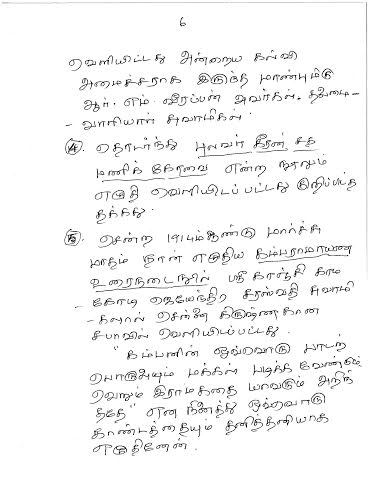 6
வெளியிட்டது அன்றைய கல்வி
அமைச்சராக இருந்த மாண்புமிகு
ஆர். எம். வீரப்பன் அவர்கள். தலைமை-
- வாரியார் சுவாமிகள்.
4. தொடர்ந்து புலவர் கீரன் சத
மணிக் கோவை என்ற நூலும்
எழுதி வெளியிடப்பட்டது குறிப்பிடத்
தக்கது.
5. சென்ற 1914ம்ஆண்டு மார்ச்சு
மாதம் நான் எழுதிய கம்பராமாயண
உரைநடைநூல் ஸ்ரீ காஞ்சி காம
- கோடி ஜெயேந்திர சரஸ்வதி சுவாமி
- களால் சென்னை கிருஷ்ணகான
சபாவில் வெளியிடப்பட்டது.
"கம்பனின் ஒவ்வொரு பாடற்
பொருளையும் மக்கள் படிக்க வேண்டும்
வெறும் இராமகதை யாவரும் அறிந்
ததே" என நினைத்து ஒவ்வொரு
காண்டத்தையும் தனித்தனியாக
எழுதினேன்.